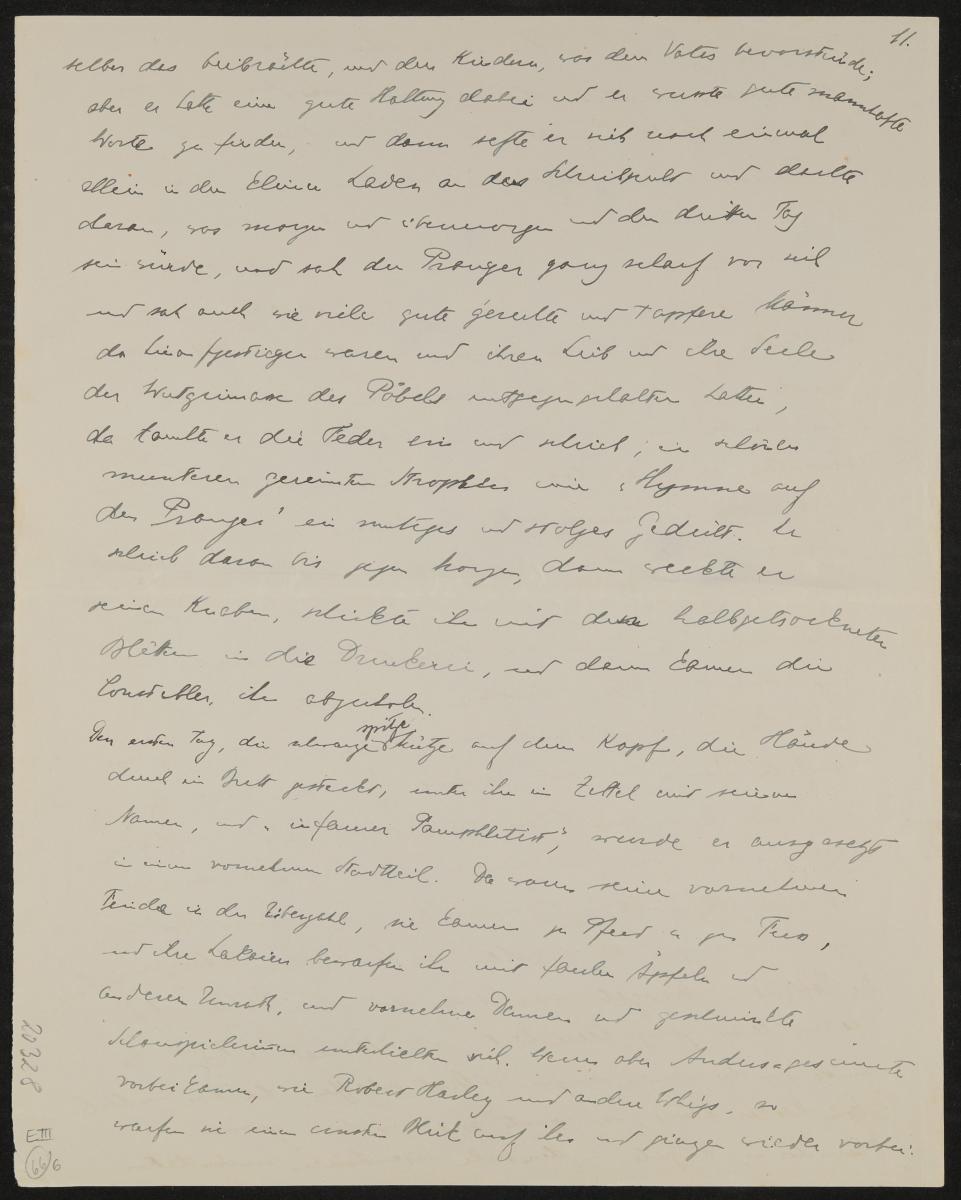 11.
selber das beibrächte, und den Kindern, was dem Vater bevorstünde;
aber er hatte eine gute Haltung dabei und er wusste gute mannhafte
Worte zu finden, und dann setzte er sich noch einmal
allein in den kleinen Laden an das Schreibpult und dachte
daran, was morgen und übermorgen und den dritten Tag
sein würde, und sah den Pranger ganz scharf vor sich
und sah auch wie viele gute gerechte und tapfere Männer
da hinaufgestiegen waren und ihren Leib und ihre Seele
der Wutgrimasse des Pöbels entgegengehalten hatten,
da tauchte er die Feder ein und schrieb, in schönen
munteren gereimten Strophen eine "Hymne auf
den Pranger" ein mutiges und stolzes Gedicht. Er
schrieb daran bis gegen Morgen, dann weckte er
seinen Knaben, schickte ihn mit den halbgetrockneten
Blättern in die Druckerei, und dann kamen die
Constabler, ihn abzuholen.
Den ersten Tag, die schwarze spitze Mütze auf dem Kopf, die Hände
durch ein Brett gesteckt, unter ihm ein Zettel mit seinem
Namen, und "infamer Pamphletist", wurde er ausgesetzt
in einem vornehmen Stadtteil. Da waren seine vornehmen
Feinde in der Überzahl, sie kamen zu Pferd u zu Fuss,
und ihre Lakaien bewarfen ihn mit faulen Äpfeln und
anderem Unrat, und vornehme Damen und geschminkte
Schauspielerinnen unterhielten sich. Wenn aber Andersgesinnte
vorbei kamen, wie Robert Harley und andere Whigs, so
warfen sie einen ernsten Blick auf ihn und gingen wieder vorbei.
20328
E III
66 6